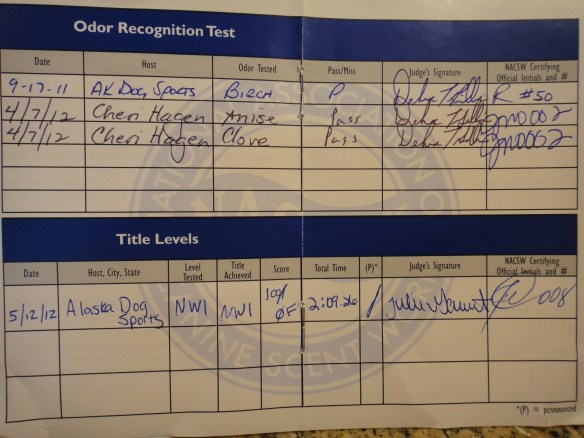 Odor Recognition Test
Date Host Odor Tested Pass/Miss Judge's Signature NACSW Certifying Official Initials and #
9-17-11 AK Dog Sports BIRCH P R #50
4/7/12 Cheri Hagen Anise Pass
4/7/12 Cheri Hagen Clove Pass
Title Levels
Date Host, City, State Level Tested Title Achieved Score Total Time (P)* Judge's Signature NACSW Certifying Official Initials and #
5/12/12 Alaska Dog Sports NW1 NW1 100/ ØF 2:09.26 / 008
*(P) = pronounced